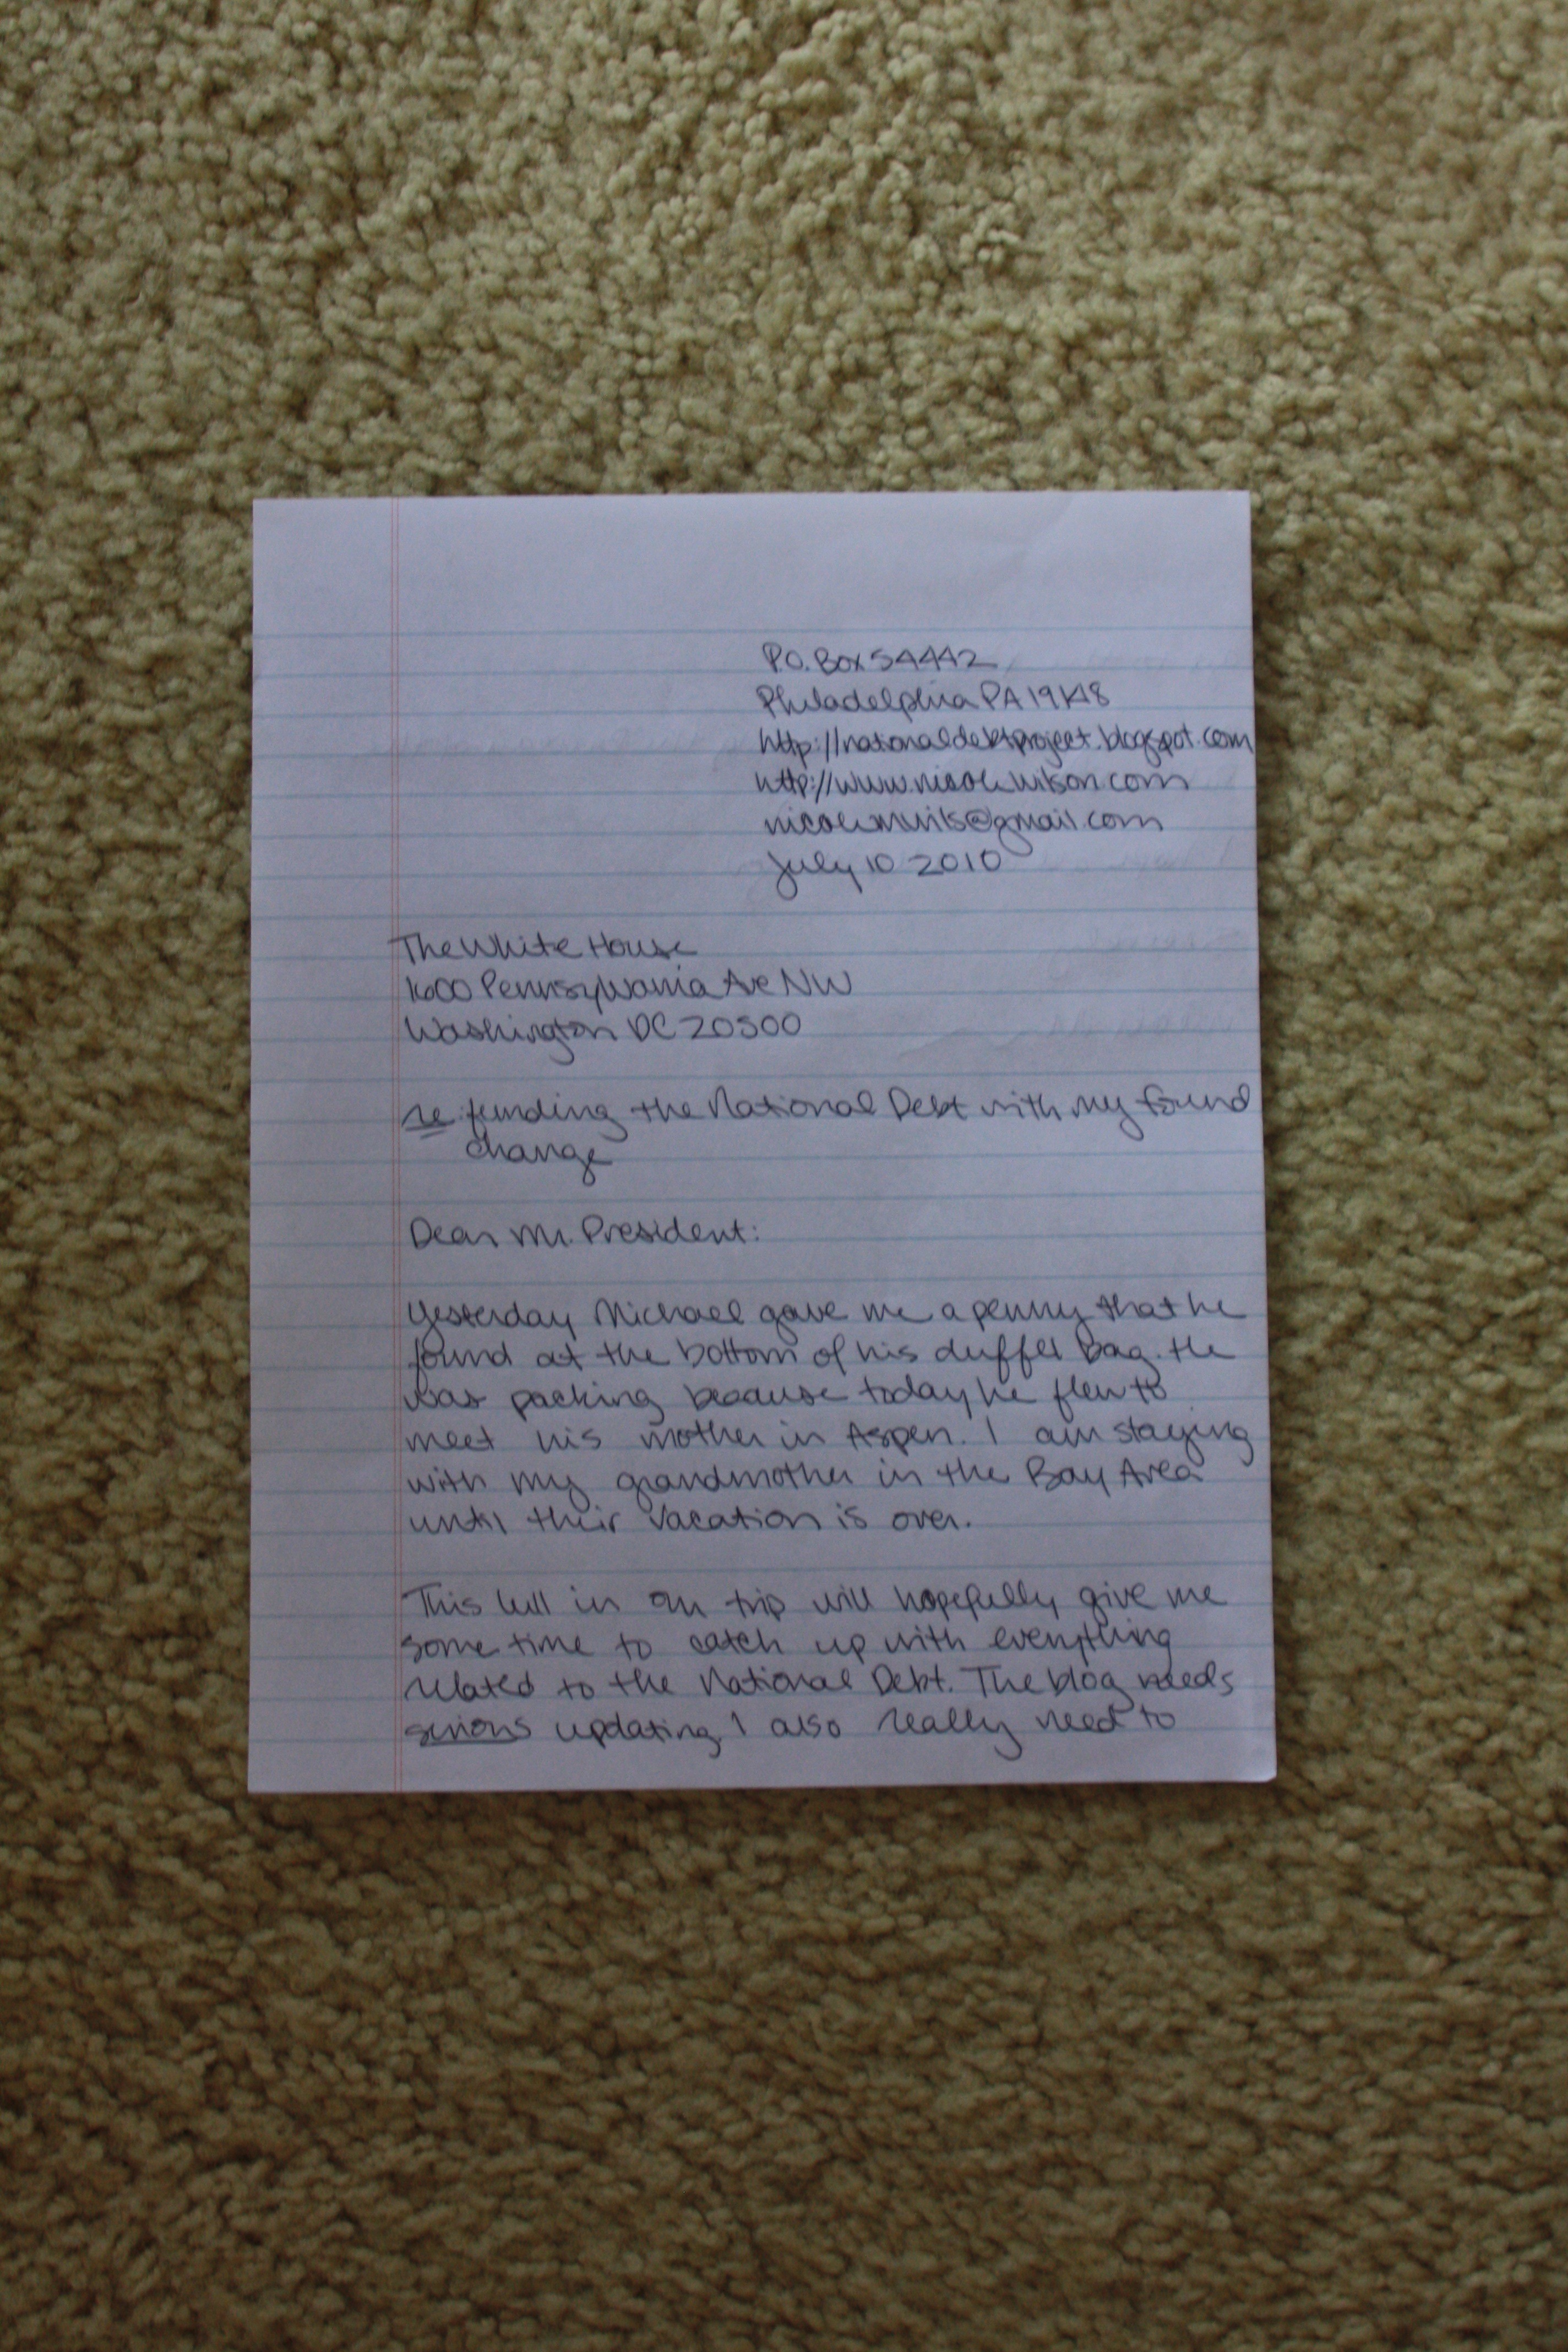 P.O. Box 54442
Philadelphia PA 19148
http://nationaldebtproject.blogspot.com
http://www.nicolewilson.com
July 10 2010
The White House
1600 Pennsylvania Ave NW
Washington DC 20500
re: funding the National Debt with my found
change
Dear Mr. President:
Yesterday Michael gave me a penny that he
found at the bottom of his duffel bag. He
was packing because today he flew to
meet his mother in Aspen. I am staying
with my grandmother in the Bay Area
until their vacation is over.
This lull in our trip will hopefully give me
some time to catch up with everything
related to the National Debt. The blog needs
serious updating, I also really need to